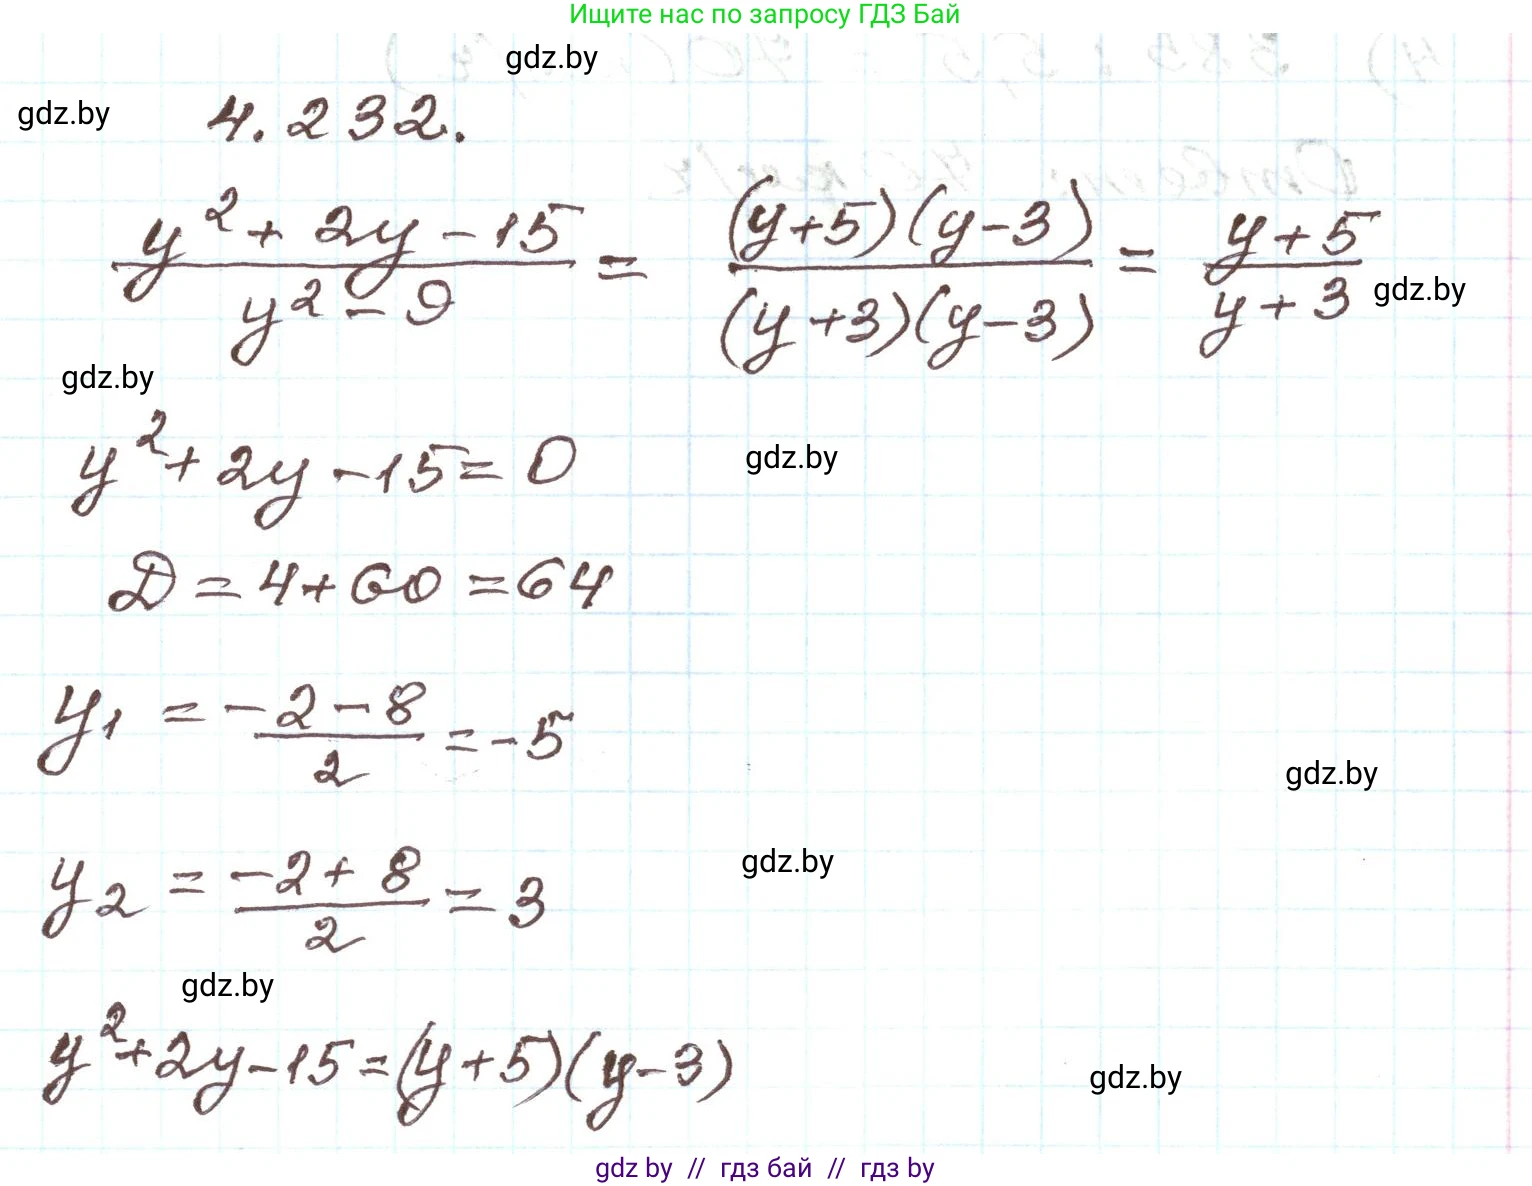 Ищите нас по запросу ГДЗ Бай
gdz.by
gdz.by
4.232.
y² + 2y - 15 / y² - 9 = (y+5)(y-3) / (y+3)(y-3) = y+5 / y+3
gdz.by
gdz.by
y² + 2y - 15 = 0
gdz.by
D = 4 + 60 = 64
y₁ = -2 - 8 / 2 = -5
gdz.by
y₂ = -2 + 8 / 2 = 3
gdz.by
gdz.by
y² + 2y - 15 = (y+5)(y-3)
gdz.by
gdz by // гдз бай // гдз by